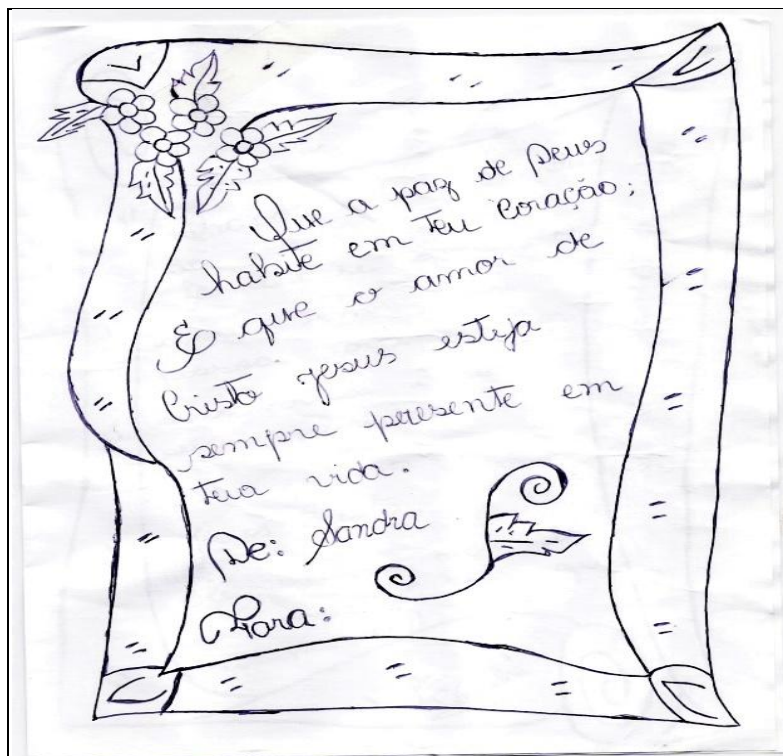 Que a paz de Deus
habite em teu Coração;
E que o amor de
Cristo Jesus esteja
sempre presente em
tua vida.
De: Sandra
Para: